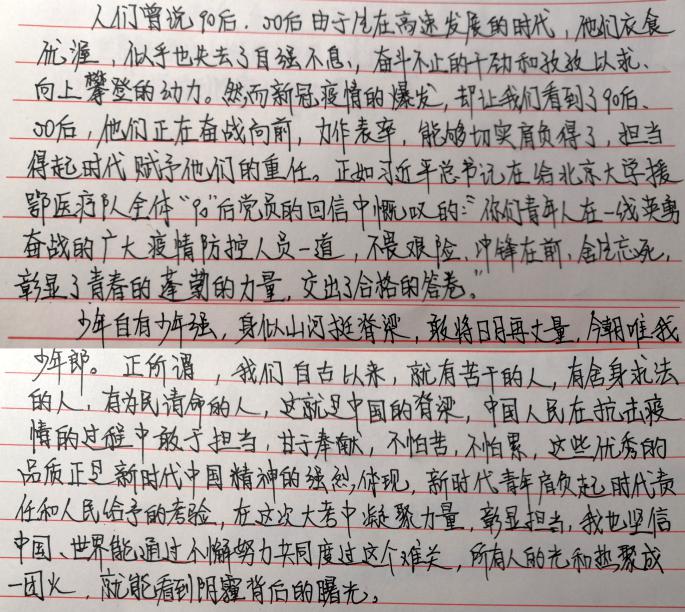 人们曾说90后、00后由于生在高速发展的时代，他们衣食
优渥，似乎也失去了自强不息、奋斗不止的干劲和孜孜以求、
向上攀登的动力。然而新冠疫情的爆发，却让我们看到了90后、
00后，他们正在奋战向前，力作表率，能够切实肩负得了，担当
得起时代赋予他们的重任。正如习近平总书记在给北京大学援
鄂医疗队全体“90”后党员的回信中慨叹的：“你们青年人在一线英勇
奋战的广大疫情防控人员一道，不畏艰险、冲锋在前、舍生忘死，
彰显了青春的蓬勃的力量，交出了合格的答卷。”
少年自有少年强，身似山河挺脊梁，敢将日月再丈量，今朝唯我
少年郎。正所谓，我们自古以来，就有苦干的人，有舍身求法
的人，有为民请命的人，这就是中国的脊梁，中国人民在抗击疫
情的过程中敢于担当，甘于奉献，不怕苦，不怕累，这些优秀的
品质正是新时代中国精神的强烈体现，新时代青年肩负起时代责
任和人民给予的考验，在这次大考中凝聚力量，彰显担当，我也坚信
中国、世界能通过不懈努力共同度过这个难关，所有人的光和热聚成
一团火，就能看到阴霾背后的曙光。